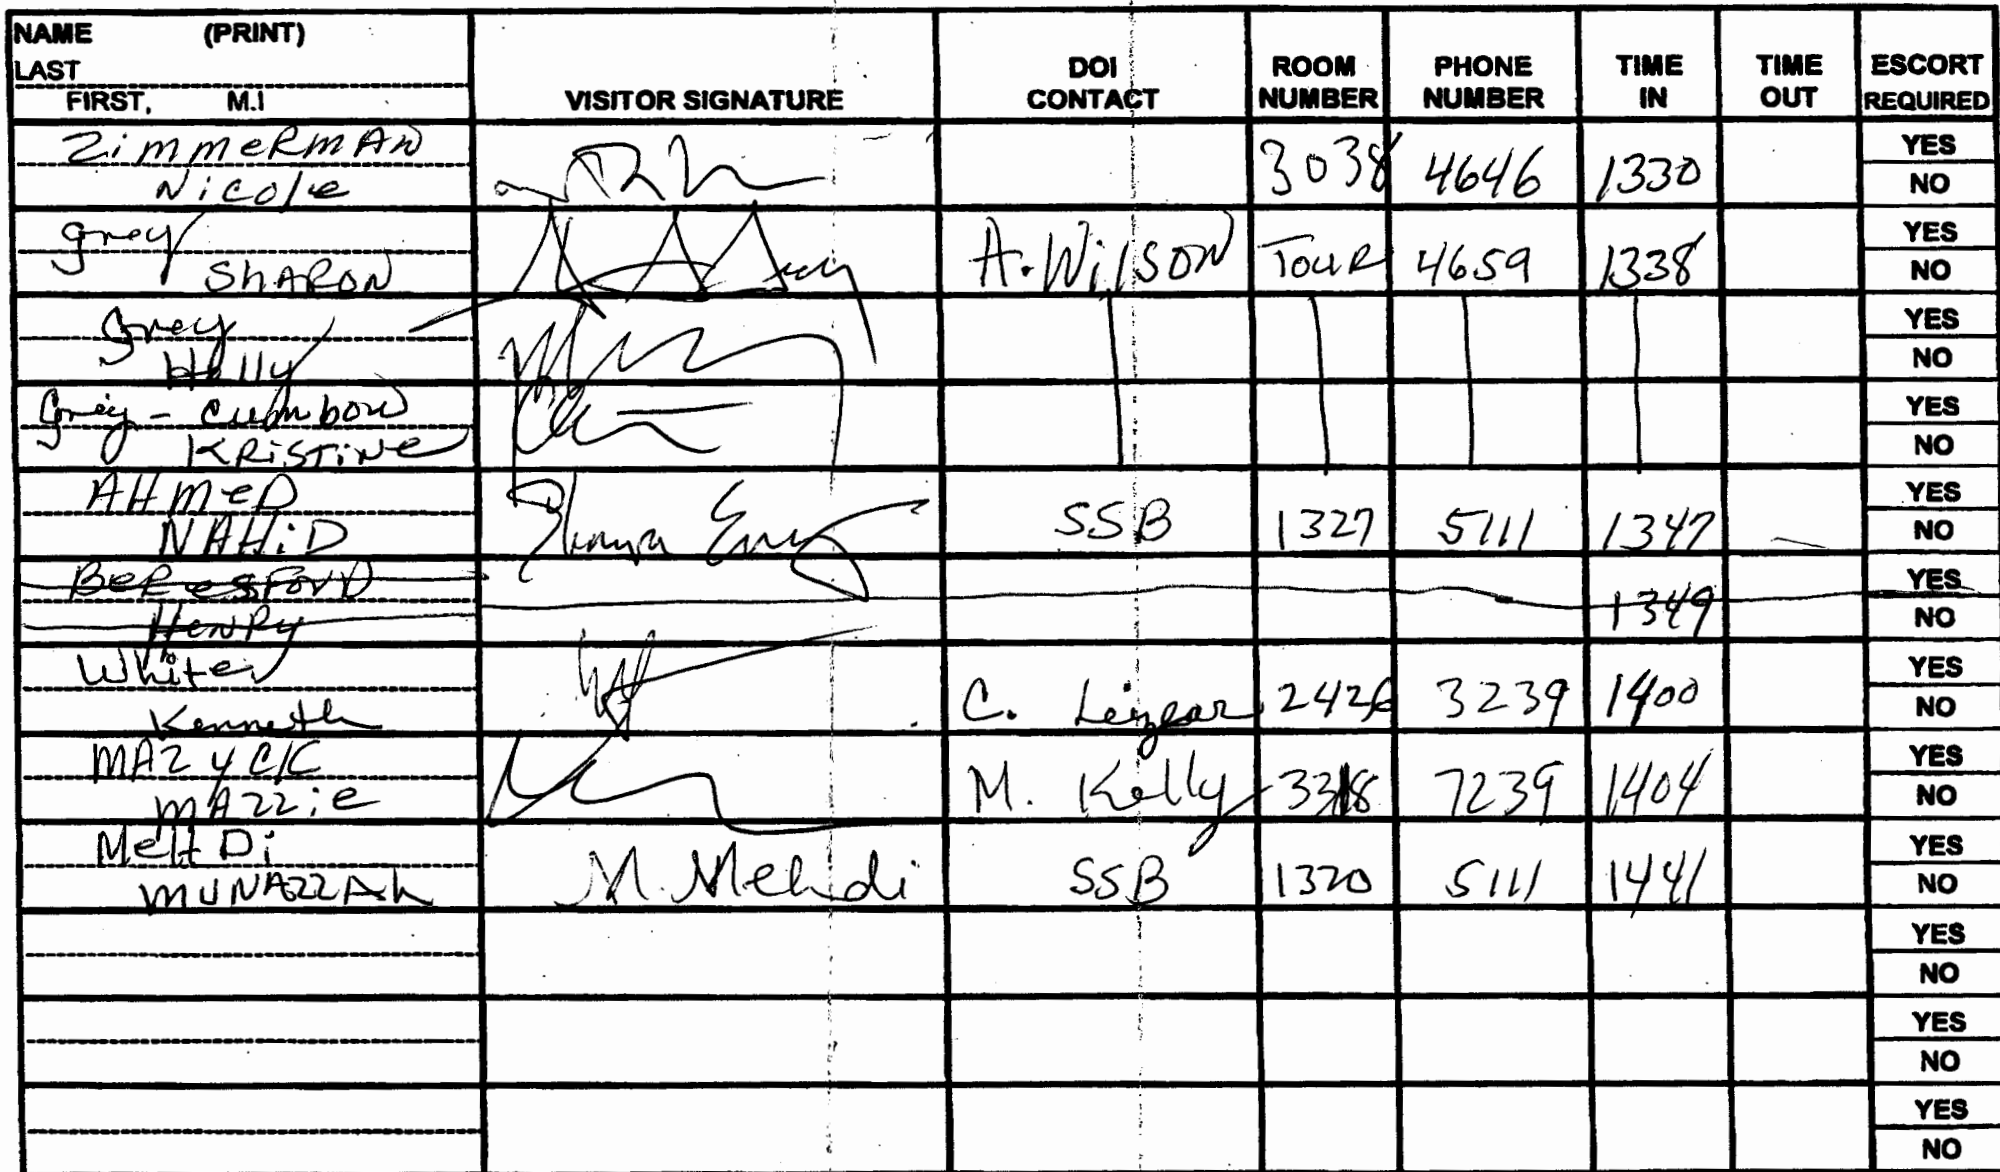 NAME (PRINT)
LAST
FIRST, M.I
VISITOR SIGNATURE
DOI CONTACT
ROOM NUMBER
PHONE NUMBER
TIME IN
TIME OUT
ESCORT REQUIRED
Zimmerman
Nicole
3038 4646 1330
YES
NO
Grey
SHARON
A. Wilson Tour 4659 1338
YES
NO
Grey
Holly
YES
NO
Grey - Cumbow
KRISTINE
YES
NO
AHMED
NAHID
SSB 1327 5111 1347
YES
NO
BERESFORD
HENRY
1349
YES
NO
White
Kenneth
C. 2426 3239 1400
YES
NO
MAZYCK
MAZZIE
M. Kelly 3318 7239 1404
YES
NO
MEHDI
MUNAZZAH
M. Mehdi SSB 1320 5111 1441
YES
NO
YES
NO
YES
NO
YES
NO